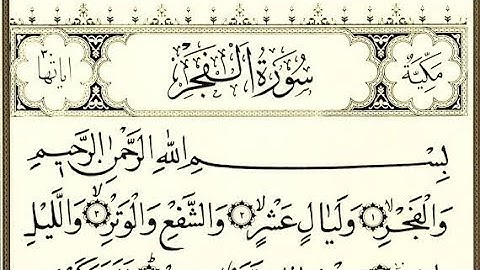 مكية سورة الفجر آياتها ٣٠
بسم الله الرحمن الرحيم
والفجر ١ وليال عشر ٢ والشفع والوتر ٣ والليل